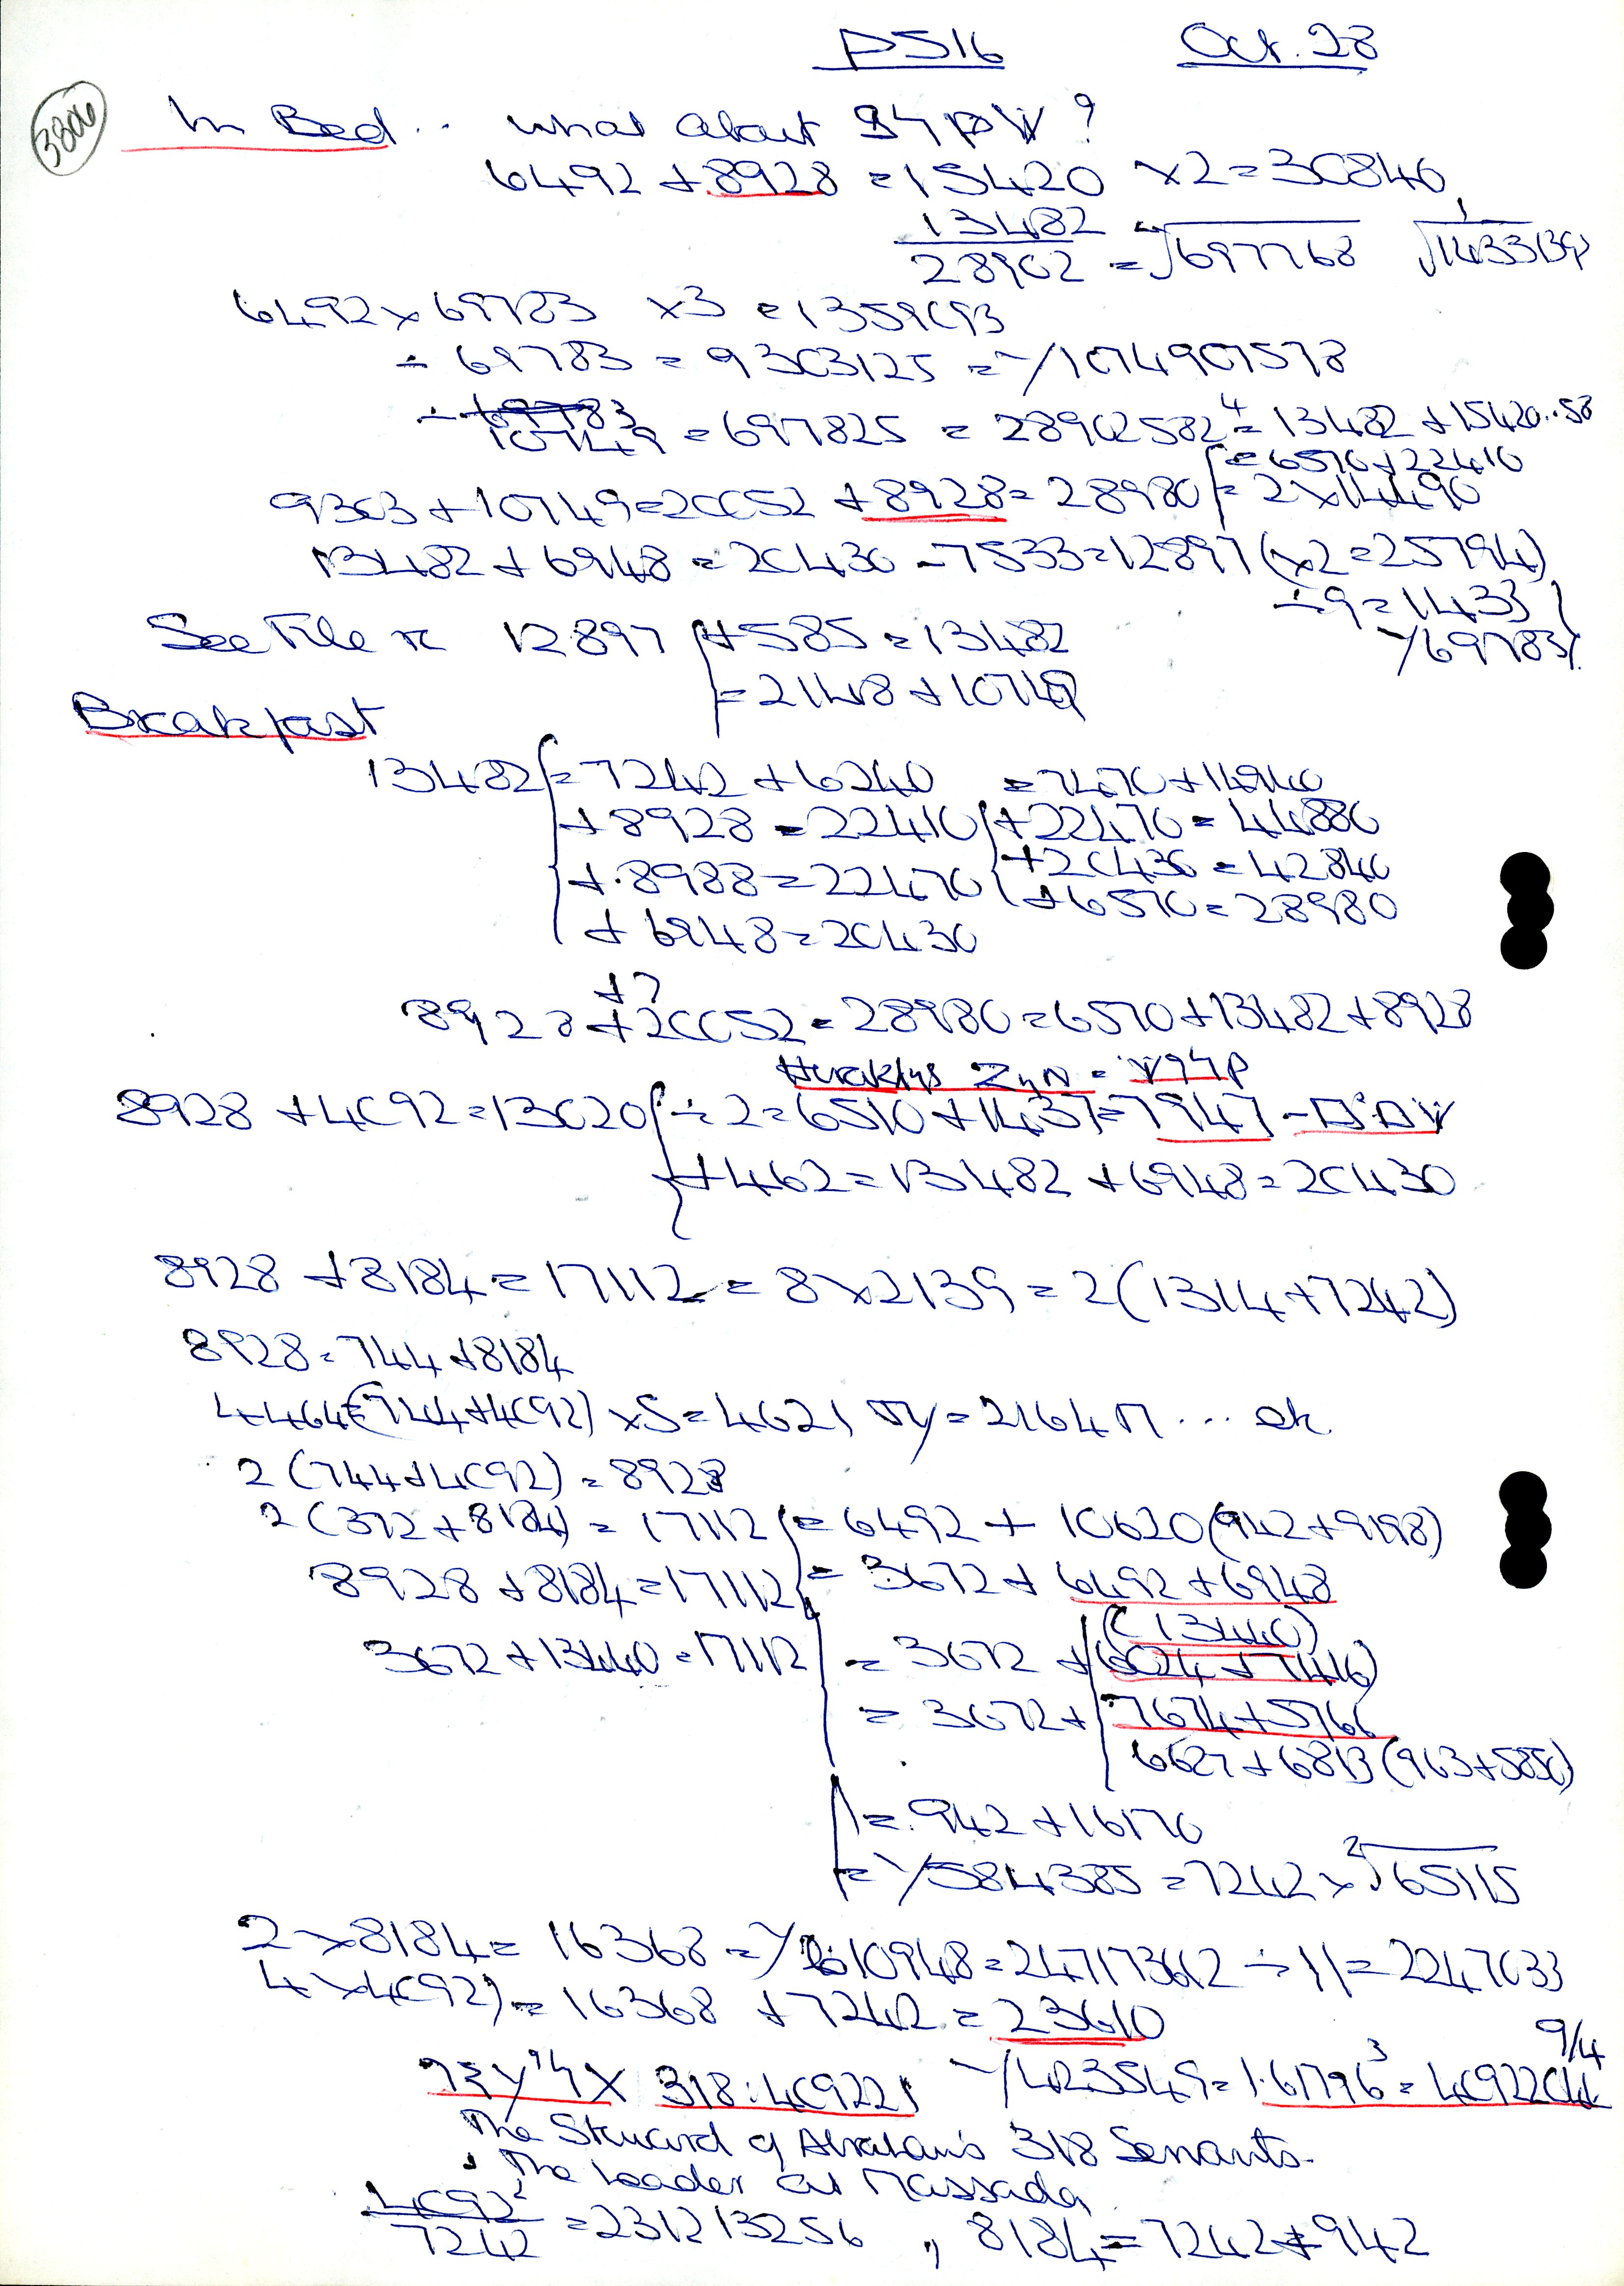 P516 Oct. 28
3806
In Bed .. what about
6492 + 8928 = 15420 × 2 = 30840
13482
28902 = √697768 √1433139
6492 × 69783 × 3 = 1359093
÷ 69783 = 9303125 = √1074907578
÷ 10749 = 697825 = 28902582 = 13482 + 15420..58
= 6570 + 22410
9303 + 10749 = 20052 + 8928 = 28980 = 2 × 14490
13482 + 6948 = 20430 - 7533 = 12897 (×2 = 25794)
÷ 9 = 1433
√69783
See File π 12897 + 585 = 13482
= 2148 + 10749
Breakfast
13482 = 7242 + 6240 = 7470 + 14940
+ 8928 = 22410 + 22470 = 44880
+ 20430 = 42840
+ 8988 = 22470 + 6570 = 28980
+ 6948 = 20430
+ ?
8928 + 20052 = 28980 = 6570 + 13482 + 8928
8928 + 4092 = 13020 ÷ 2 = 6510 + 1437 = 7947 -
+ 462 = 13482 + 6948 = 20430
8928 + 8184 = 17112 = 8 × 2139 = 2(1314 + 7242)
8928 = 744 + 8184
4464 (= 744 + 4092) × 5 = 4621 = 2164 π ... ok
2(744 + 4092) = 8928
2(372 + 8184) = 17112 = 6492 + 10620 (942 + 9198)
8928 + 8184 = 17112 = 3672 + 6492 + 6948
(13440)
3672 + 13440 = 17112 = 3672 + (6024 + 7416)
= 3672 + 7674 + 5766
6627 + 6813 (963 + 5850)
= 942 + 16170
= √584385 = 7242 × ²√65115
2 × 8184 = 16368 = √610948 = 247173612 ÷ 11 = 2247033
4 × 4092) = 16368 + 7242 = 23610
318 : 409221 √423549 = 1.61796³ = 4092204
9/4
The Steward of Abraham's 318 Servants.
The Leader at Massada
4092²
7242 = 231213256 , 8184 = 7242 + 942